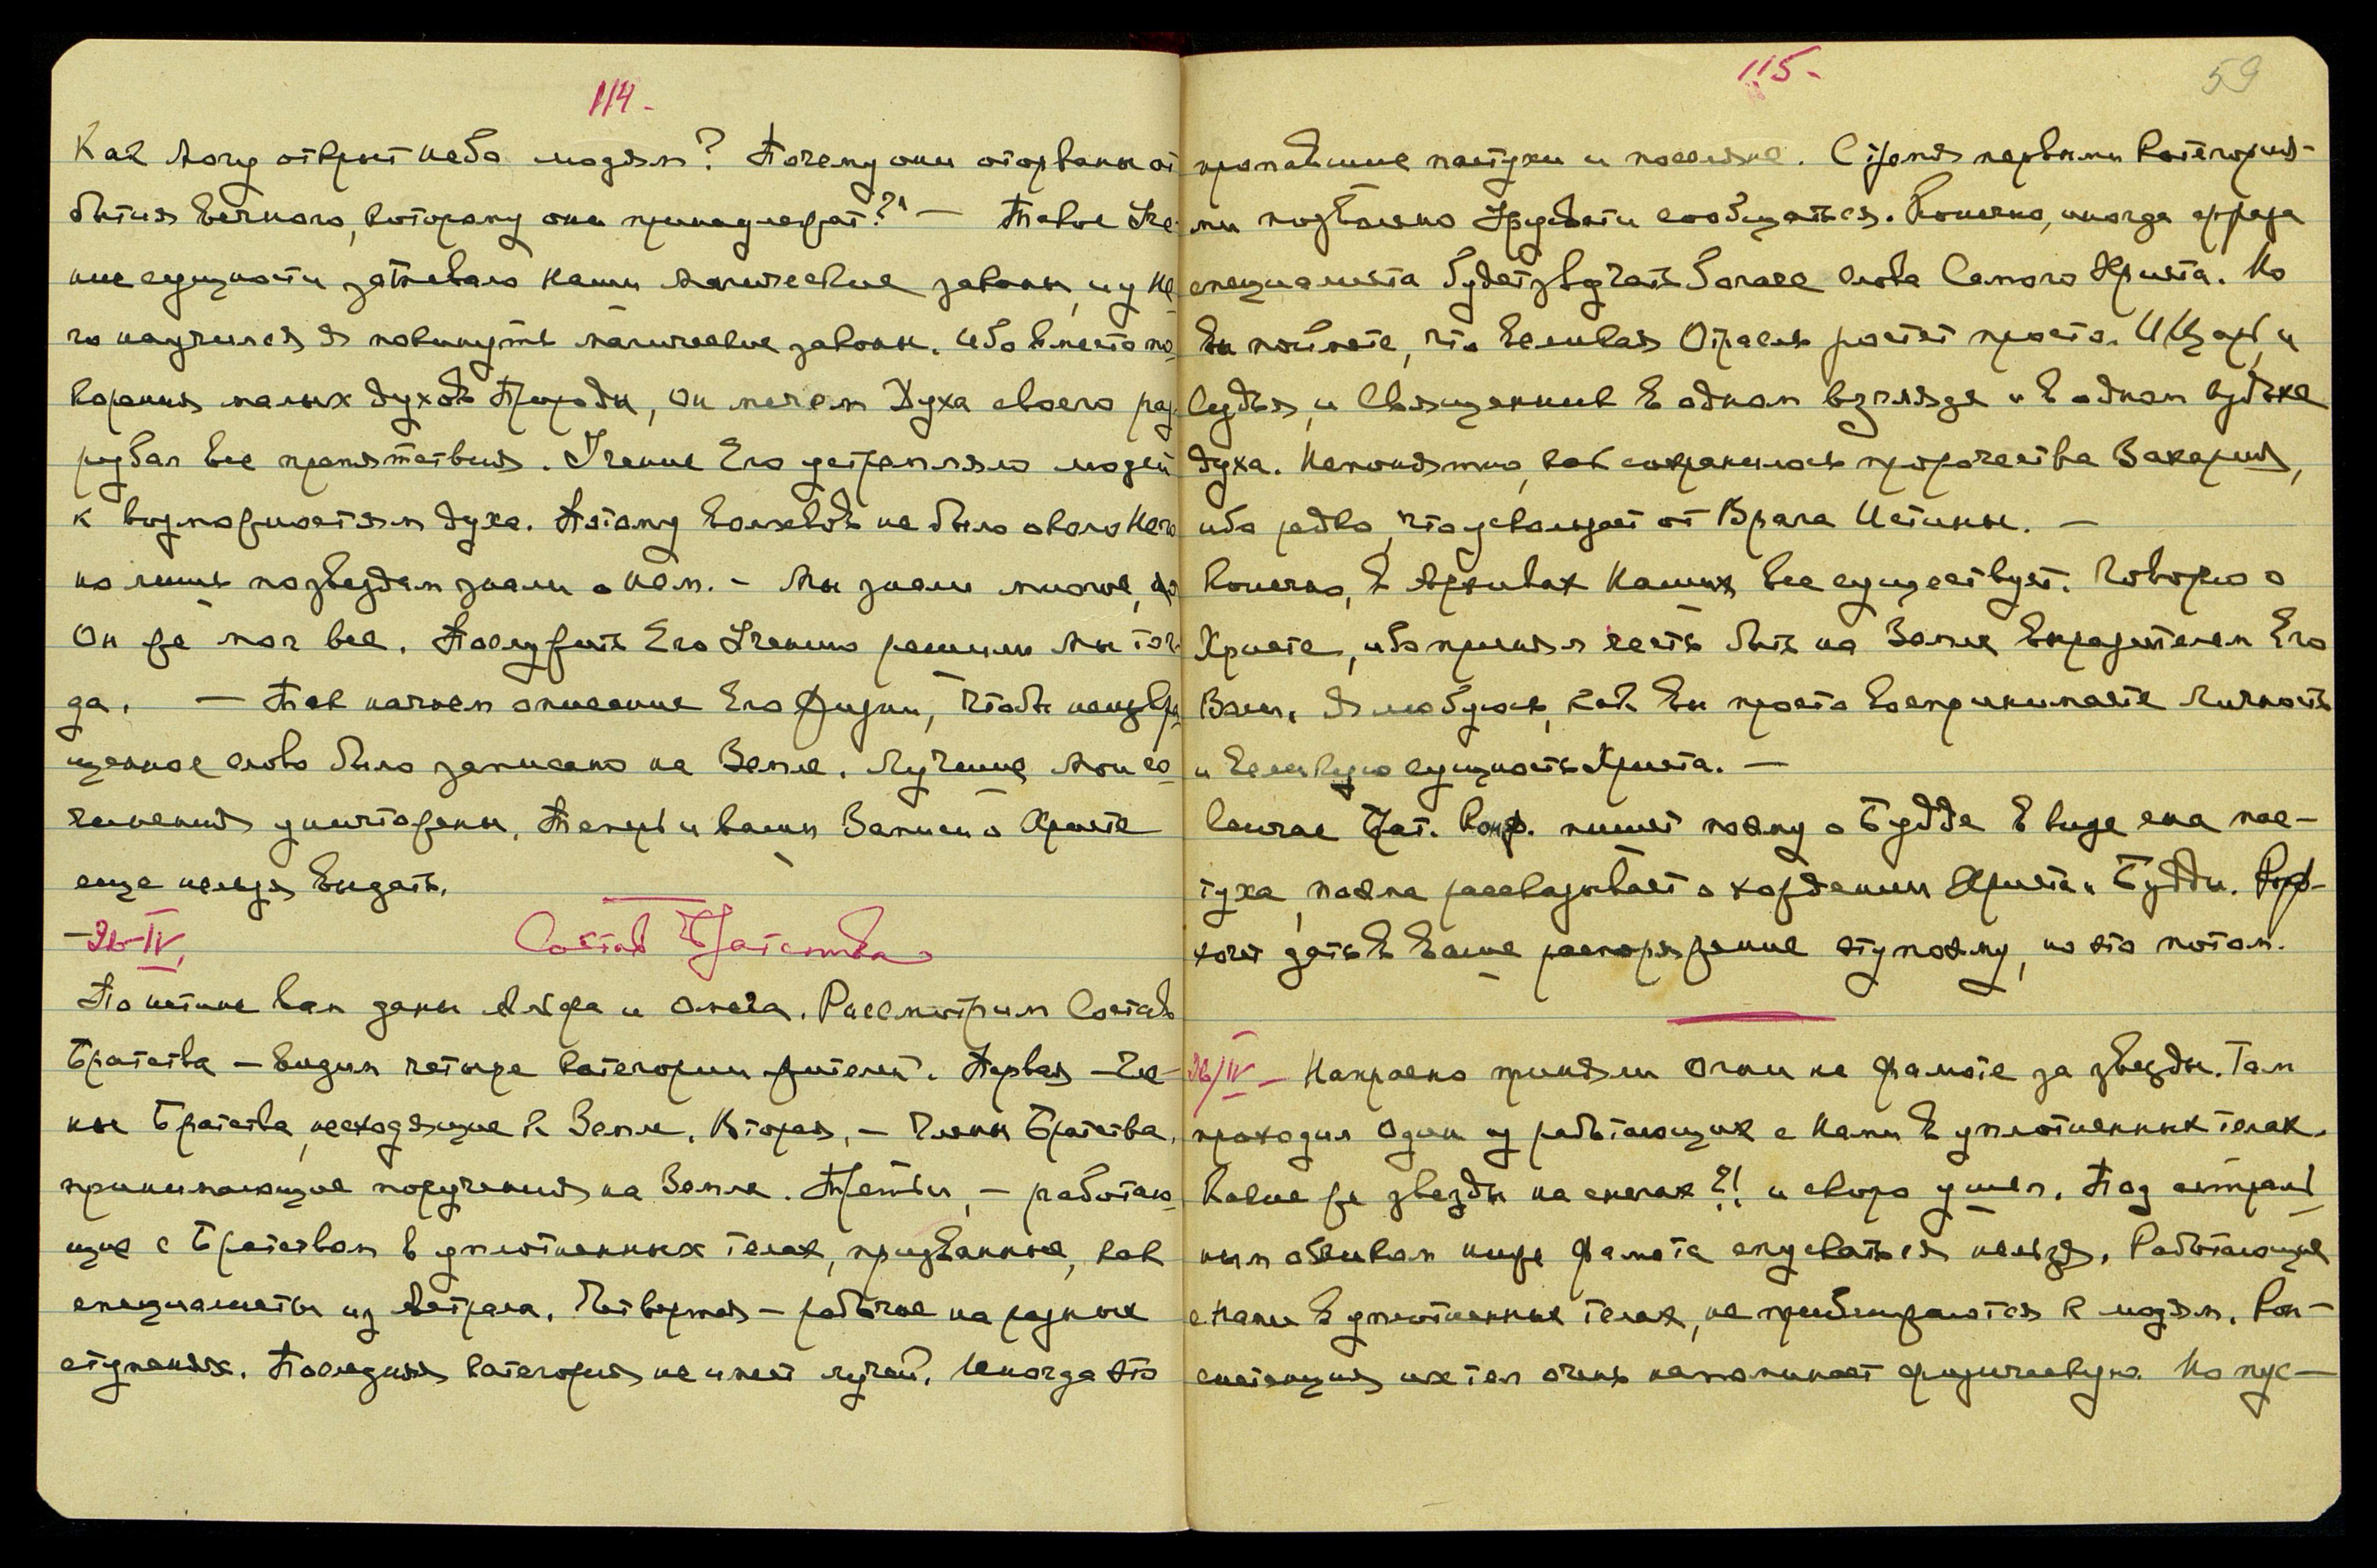 114.-
Как могу открыть небо людям? Почему они оторваны от
бытия вечного, которому они принадлежат?" — Такое Уче-
ние сущности затмевало наши магические законы, и у Не-
го научился я покинуть магические законы. Ибо вместо по-
корения малых духов Природы, Он мечем Духа своего раз-
рубал все препятствия. Учение Его устремляло людей
к возможностям духа. Потому волхвов не было около Него
но лишь по звездам знали о Нем. - Мы знали многое, но
Он же мог все. Послужить Его Учению решили мы тог-
да. — Так начнем описание Его Жизни, чтобы неизвра-
щенное слово было записано на Земле. Лучшие Мои со-
чинения уничтожены. Теперь и ваши Записи о Христе
еще нельзя выдать.
-26-IV. Состав Братства
По истине вам даны Альфа и Омега. Рассмотрим Состав
Братства — видим четыре категории жителей. Первая — Чле-
ны Братства, нисходящие к Земле. Вторая, — Члены Братства,
принимающие поручения на Земле. Третьи, — работаю-
щие с Братством в уплотненных телах, призванные, как
специалисты из Астрала. Четвертая — рабочие на разных
ступенях. Последняя категория не имеет лучей. Иногда это
115.-
59
пропавшие пастухи и поселяне. С тремя первыми категория-
ми позволено Урусвати сообщаться. Конечно, иногда фраза
специалиста будет звучать богаче слова Самого Христа. Но
вы поймете, что Великая Отрасль растет просто. И Царь, и
Судья, и Священник в одном взгляде и в одном вздохе
духа. Непонятно, как сохранилось пророчества Захария,
ибо редко, что ускользает от Врага Истины. —
Конечно, в Архивах Наших все существует. Говорю о
Христе, ибо принял честь быть на Земле выразителем Его
Воли. Я любуюсь, как вы просто воспринимаете Личность
и Великую сущность Христа. —
Сейчас Брат. Конф. пишет поэму о Будде в виде сна пас-
туха, поэма рассказывает о хождении Христа и Будды.
хочет дать в ваше распоряжение эту поэму, но это потом.
26/IV — Напрасно приняли Огни на Фалюте за звезды. Там
проходил Один из работающих с Нами в уплотненных телах.
Какие же звезды на снегах?! и скоро ушел. Под астраль-
ным обликом ниже Фалюта спускаться нельзя. Работающие
с Нами в уплотненных телах, не приближаются к людям. Кон-
систенция их тел очень напоминает физическую. Но пус-